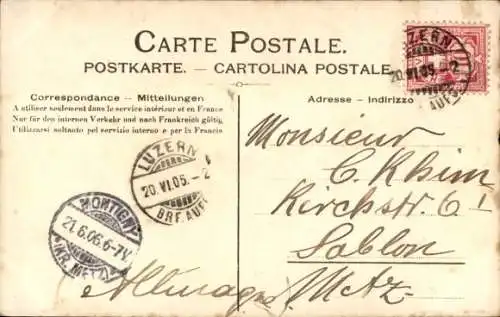 CARTE POSTALE.
POSTKARTE. — CARTOLINA POSTALE.
Correspondance — Mitteilungen
A utiliser seulement dans le service intérieur et en France
Nur für den internen Verkehr und nach Frankreich gültig
Utilizzarsi soltanto pel servizio interno e per la Francia
Adresse — Indirizzo
LUZERN
20.VI.05.–2
BRF.AUFG
LUZERN
20.VI.05.–2
BRF.AUFG
MONTIGNY
21.6.06.6-7V.
(KR. METZ)
Monsieur
C. Khim
Kirchstr. 6
Sablon
Allemagne Metz.